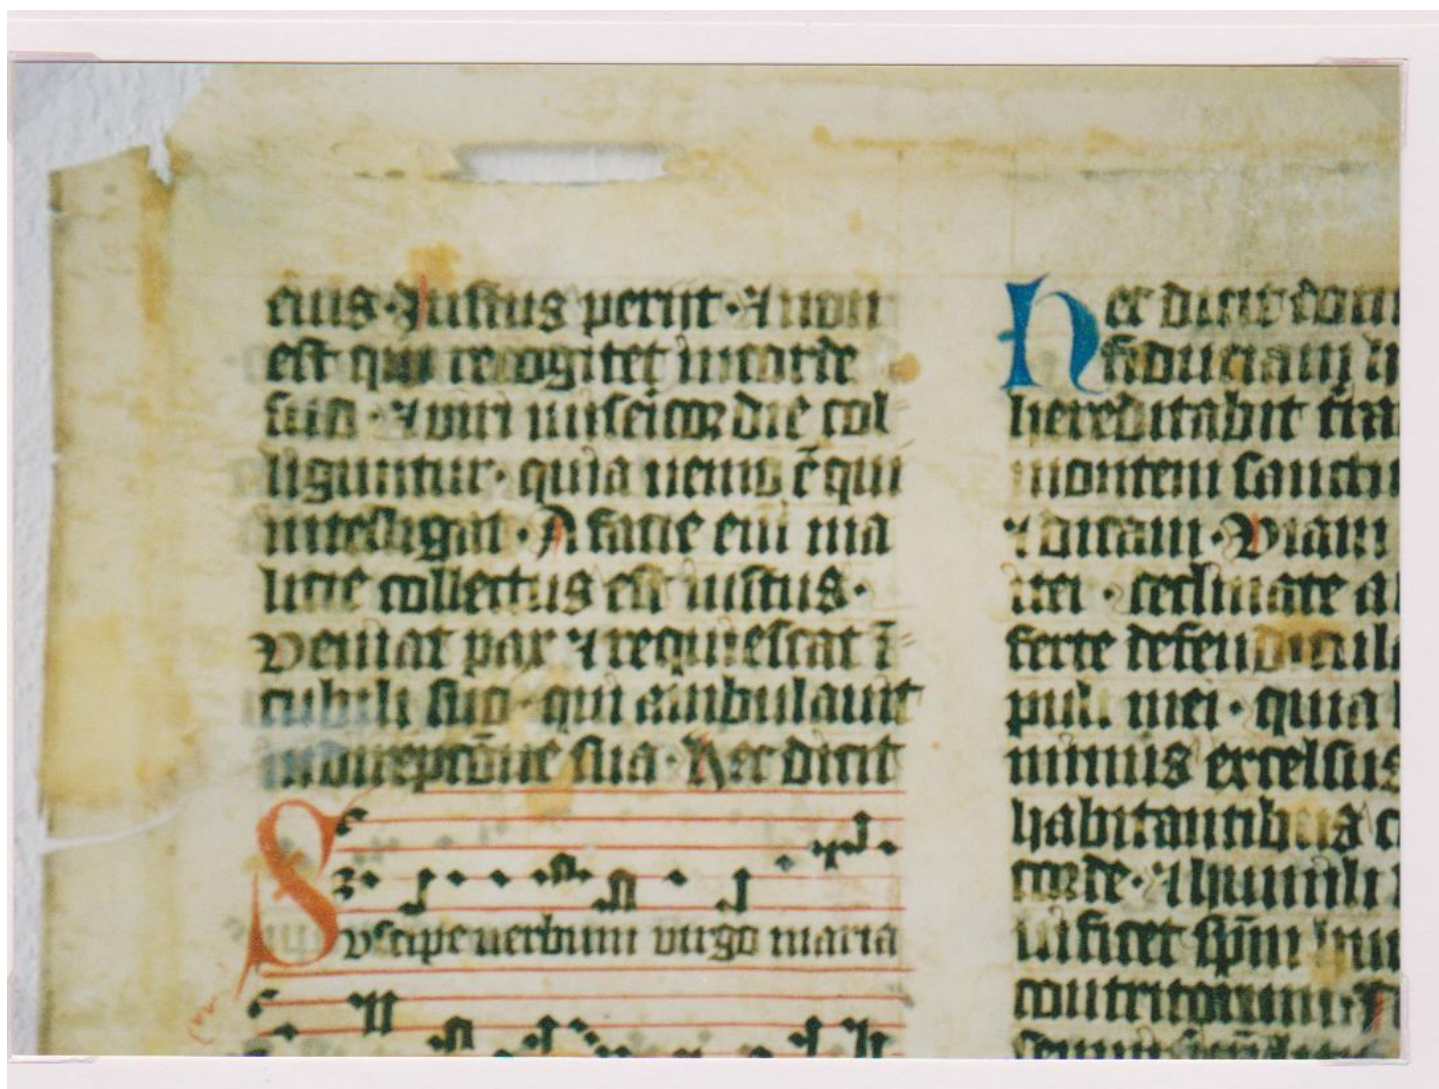 eius · Iustus perijt · ⁊ non
est qui recogitet in corde
suo · ⁊ viri misericordie col
liguntur · quia nemo ē qui
intelligat · A facie eni ma
licie collectus est iustus ·
Veniat pax ⁊ requiescat ī
cubili suo · qui ambulauit
sua · Hec dicit
Suscipe uerbum uirgo maria
Hec dicit
fiduciam
hereditabit
montem sanctu
⁊ dicam · Viam
declinate a
ferte
mei · quia
excelsus
habitantibus c
corde · ⁊ humili
uificet sp̄m hu
contritorum